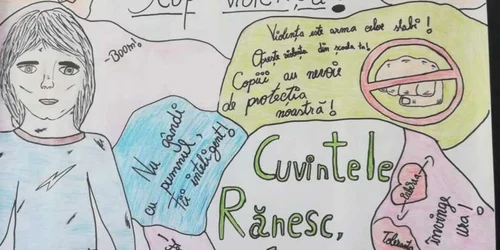 Stop violența!
-Boom!
Violența este arma celor slabi!
Oprește violența din școala ta!
Copiii au nevoie
de protecția
noastră!
Nu gândi
cu pumnul,
fii inteligent!
Cuvintele
Rănesc,
Iubirea
învinge
ura!